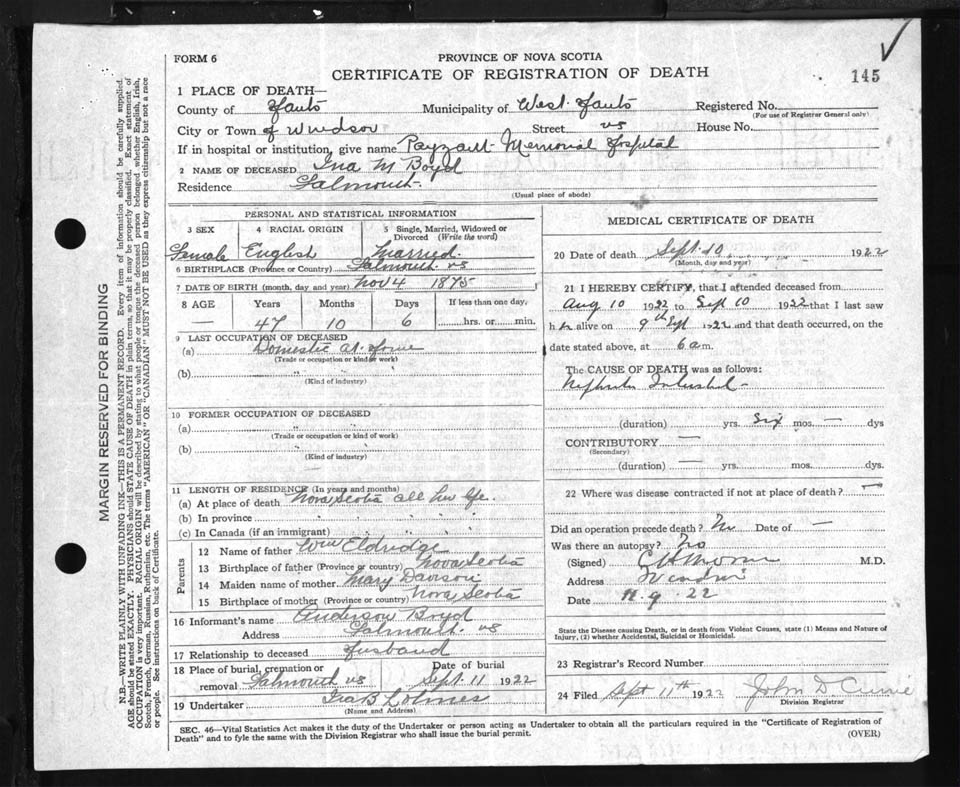 FORM 6
PROVINCE OF NOVA SCOTIA
CERTIFICATE OF REGISTRATION OF DEATH
145
1 PLACE OF DEATH—
County of Hants Municipality of West Hants Registered No.
(For use of Registrar General only)
City or Town of Windsor Street NS House No.
If in hospital or institution, give name Payzant Memorial Hospital
2 NAME OF DECEASED Ina M Boyd
Residence Falmouth
(Usual place of abode)
PERSONAL AND STATISTICAL INFORMATION
3 SEX 4 RACIAL ORIGIN 5 Single, Married, Widowed or Divorced (Write the word)
Female English Married
6 BIRTHPLACE (Province or Country) Falmouth NS
7 DATE OF BIRTH (month, day and year) Nov 4 1875
8 AGE Years Months Days If less than one day,
— 47 10 6 hrs. or min.
9 LAST OCCUPATION OF DECEASED
(a) Domestic at Home
(Trade or occupation or kind of work)
(b)
(Kind of industry)
10 FORMER OCCUPATION OF DECEASED
(a)
(Trade or occupation or kind of work)
(b)
(Kind of industry)
11 LENGTH OF RESIDENCE (In years and months)
(a) At place of death Nova Scotia all her life.
(b) In province " " " "
(c) In Canada (if an immigrant) " " " "
Parents
12 Name of father Wm Eldridge
13 Birthplace of father (Province or country) Nova Scotia
14 Maiden name of mother Mary Davison
15 Birthplace of mother (Province or country) Nova Scotia
16 Informant's name Anderson Boyd
Address Falmouth NS
17 Relationship to deceased Husband
18 Place of burial, cremation or removal Falmouth NS Date of burial Sept. 11 1922
19 Undertaker Ira B Lohnes
(Name and Address)
MEDICAL CERTIFICATE OF DEATH
20 Date of death Sept. 10 1922
(Month, day and year)
21 I HEREBY CERTIFY, that I attended deceased from
Aug 10 1922 to Sept 10 1922 that I last saw
h er alive on 9th Sept 1922 and that death occurred, on the
date stated above, at 6 a m.
The CAUSE OF DEATH was as follows:
Nephritis
(duration) yrs. Six mos. — dys
CONTRIBUTORY —
(Secondary)
(duration) — yrs. mos. dys.
22 Where was disease contracted if not at place of death? —
Did an operation precede death? No Date of —
Was there an autopsy? No
(Signed) M.D.
Address Windsor
Date 11.9.22
State the Disease causing Death, or in death from Violent Causes, state (1) Means and Nature of
Injury, (2) whether Accidental, Suicidal or Homicidal.
23 Registrar's Record Number
24 Filed Sept 11th 1922 John D Currie
Division Registrar
SEC. 46—Vital Statistics Act makes it the duty of the Undertaker or person acting as Undertaker to obtain all the particulars required in the "Certificate of Registration of
Death" and to fyle the same with the Division Registrar who shall issue the burial permit.
(OVER)
MARGIN RESERVED FOR BINDING
N.B.—WRITE PLAINLY WITH UNFADING INK—THIS IS A PERMANENT RECORD. Every item of information should be carefully supplied.
AGE should be stated EXACTLY. PHYSICIANS should STATE CAUSE OF DEATH in plain terms, so that it may be properly classified. Exact statement of
OCCUPATION is very important. RACIAL ORIGIN will be described by stating to what people or tongue the deceased person belonged whether English, Irish,
Scotch, French, German, Russian, Ruthenian, etc. The terms "AMERICAN" OR "CANADIAN" MUST NOT BE USED as they express citizenship but not a race
or people. See instructions on back of Certificate.